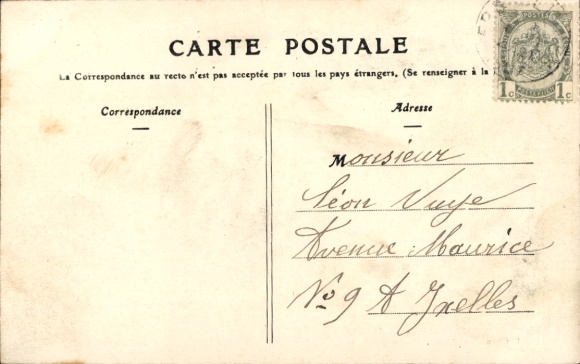 CARTE POSTALE
La Correspondance au recto n'est pas acceptée par tous les pays étrangers. (Se renseigner à la
Correspondance
Adresse
Monsieur
Léon Vuye
Avenue Maurice
No 9 A Ixelles
POSTES
1c POSTERIJEN 1c